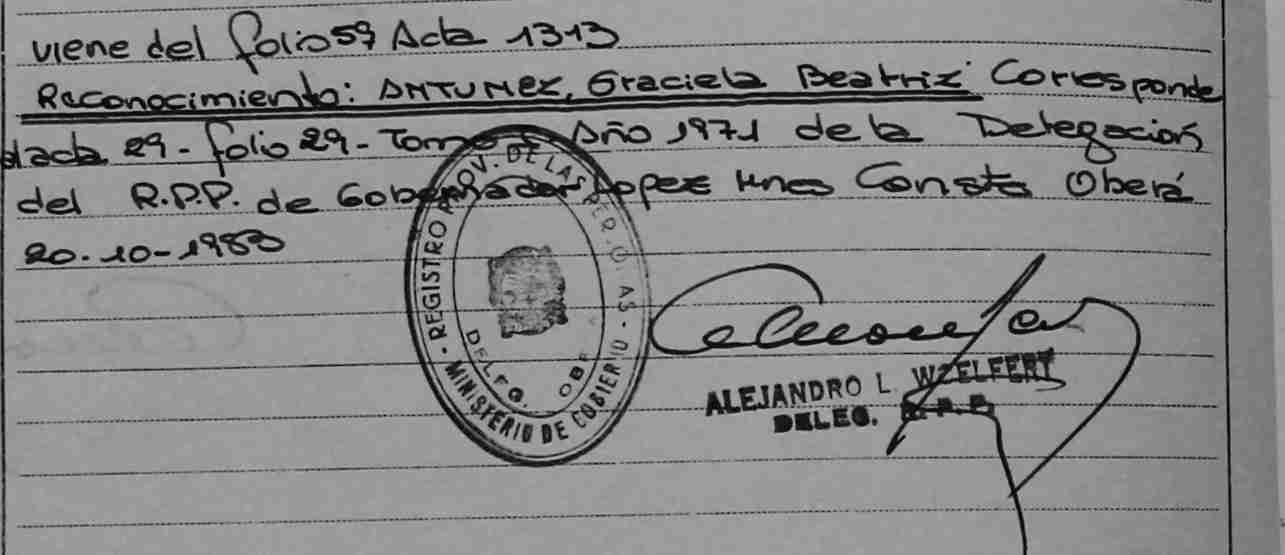 viene del folio 59 Acta 1313
Reconocimiento: ANTUNEZ, Graciela Beatriz Corresponde
Acta 29 - folio 29 - Tomo Año 1971 de la Delegación
del R.P.P. de Gobernador Lopez Consta Oberá
20-10-1983
REGISTRO PROV. DE LAS PERSONAS
MINISTERIO DE GOBIERNO
DELEG. OBE
ALEJANDRO L. WZELFERT
DELEG. R.P.P.